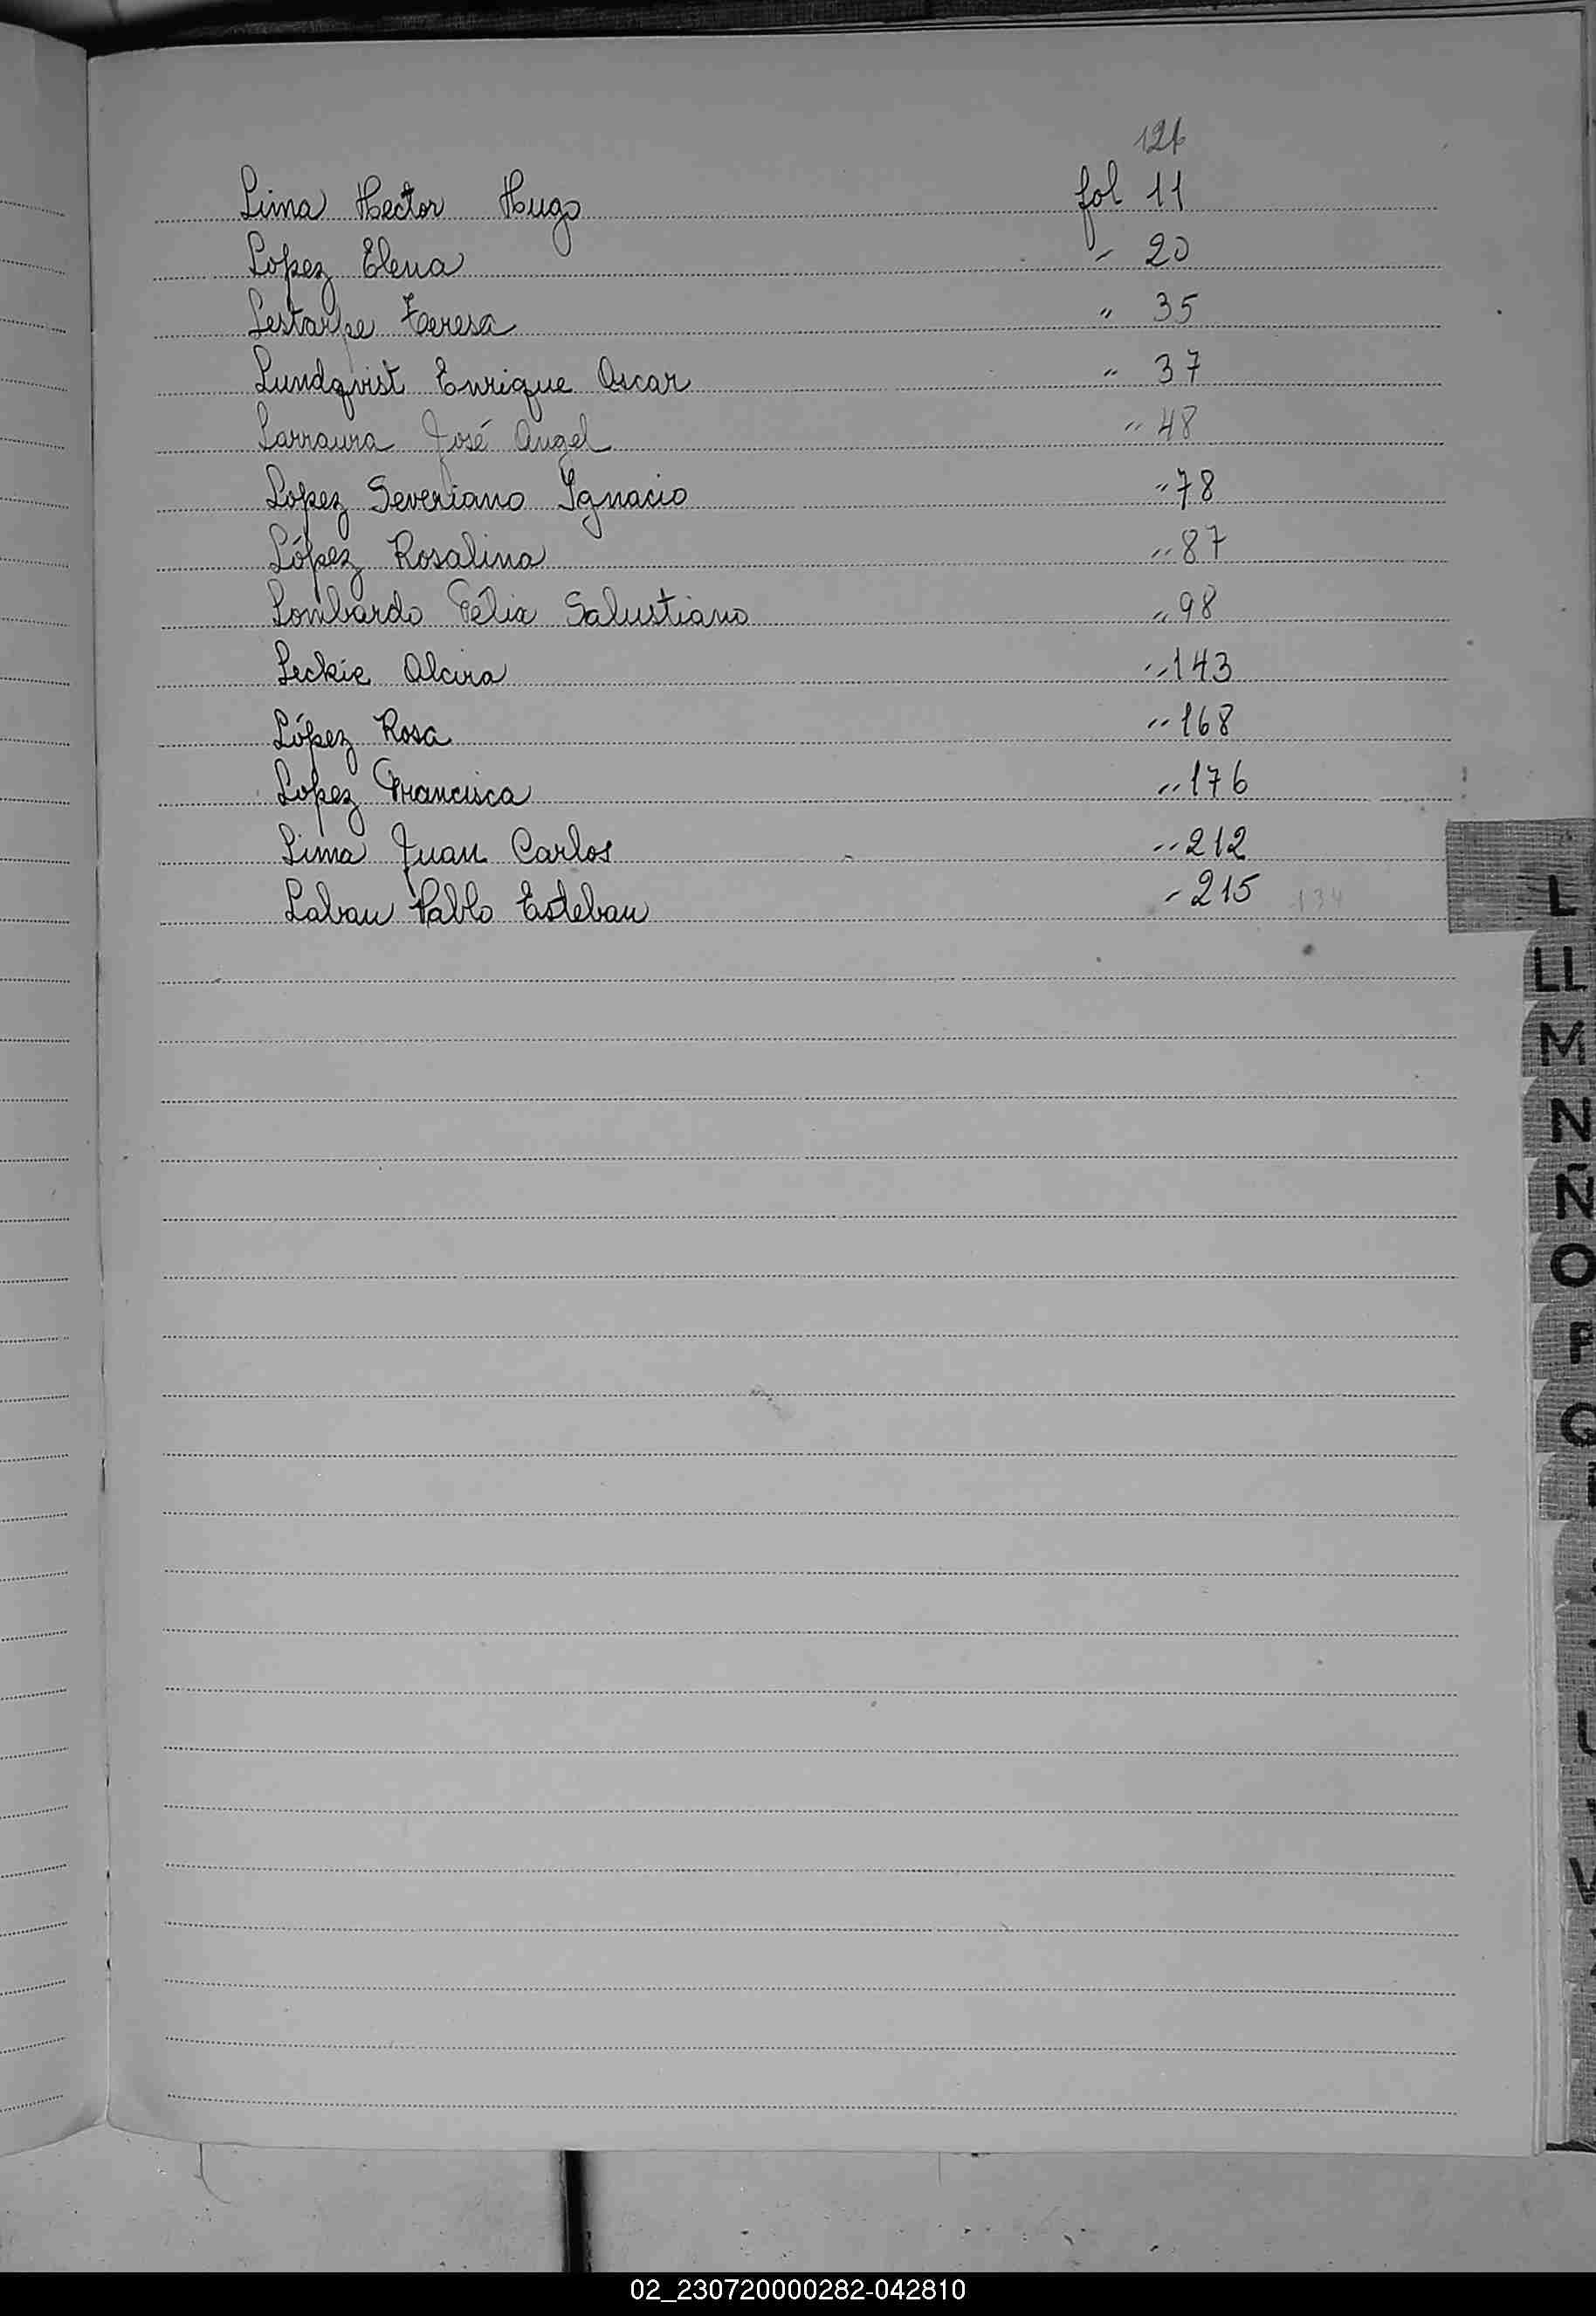 Lima Hector Hugo fol 11
Lopez Elena " 20
Lestarpe Teresa " 35
Lundqvist Enrique Oscar " 37
Larraura José Angel " 48
Lopez Severiano Ignacio " 78
López Rosalina " 87
Lombardo Félix Salustiano " 98
Leckie Alcira " 143
López Rosa " 168
Lopez Francisca " 176
Lima Juan Carlos " 212
Laban Pablo Esteban " 215 134
L
LL
M
N
Ñ
O
P
02_230720000282-042810